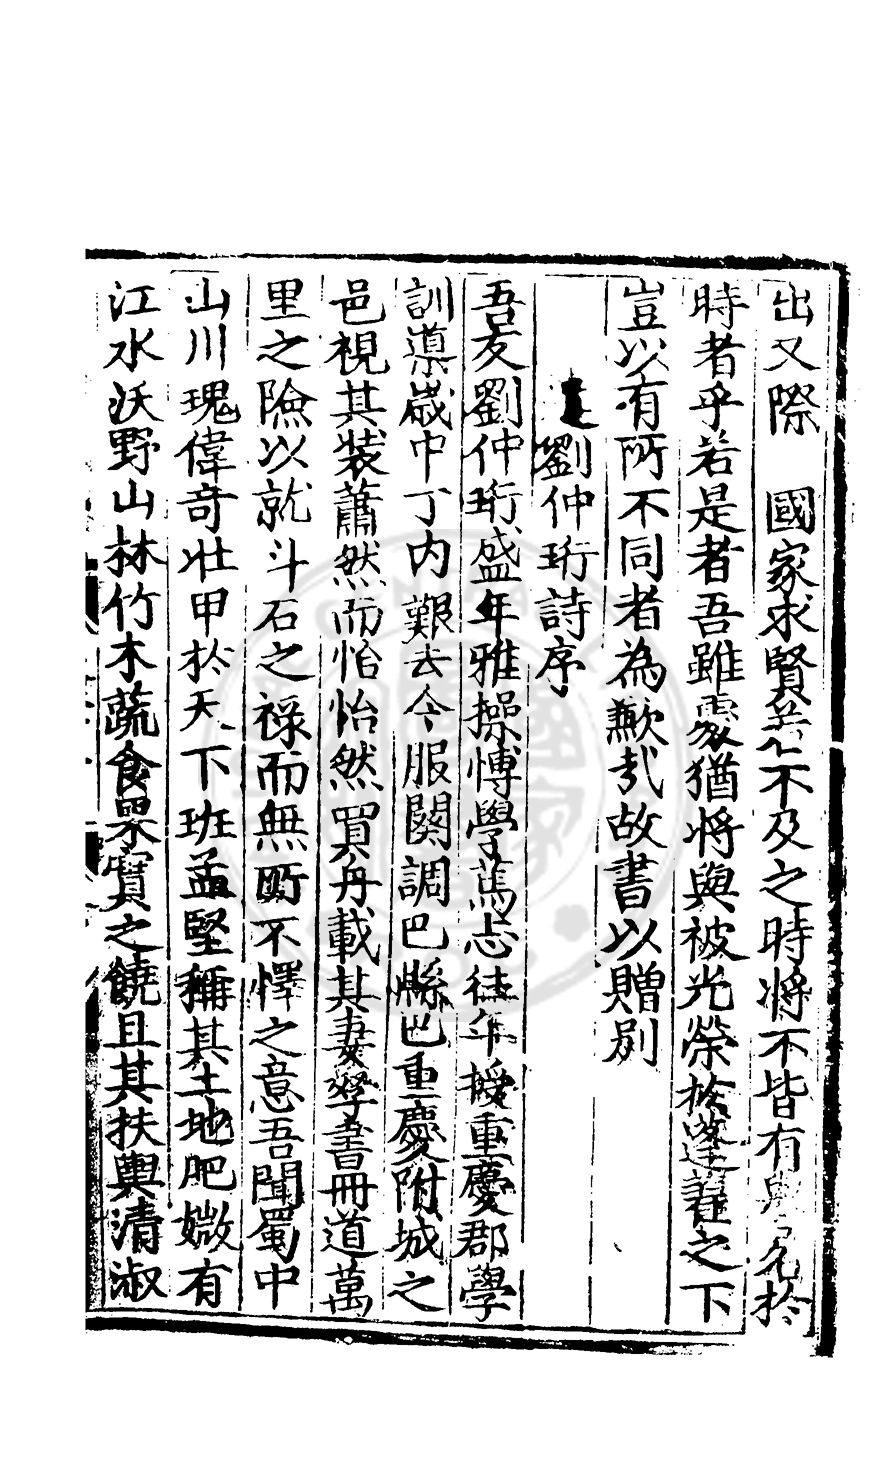 出又際　國家求賢若不及之時將不皆有與名於
時者乎若是者吾雖耄猶將與被光榮於蓬蓽之下
豈以有所不同者為歉哉故書以贈別
送劉仲珩詩序
吾友劉仲珩盛年雅操愽學篤志徃年授重慶郡學
訓導歲中丁內艱去今服闋調巴縣巴重慶附城之
邑視其裝蕭然而怡怡然買舟載其妻孥書冊道萬
里之險以就斗石之祿而無所不懌之意吾聞蜀中
山川瑰偉奇壯甲於天下班孟堅稱其土地肥媺有
江水沃野山林竹木蔬食果實之饒且其扶輿清淑